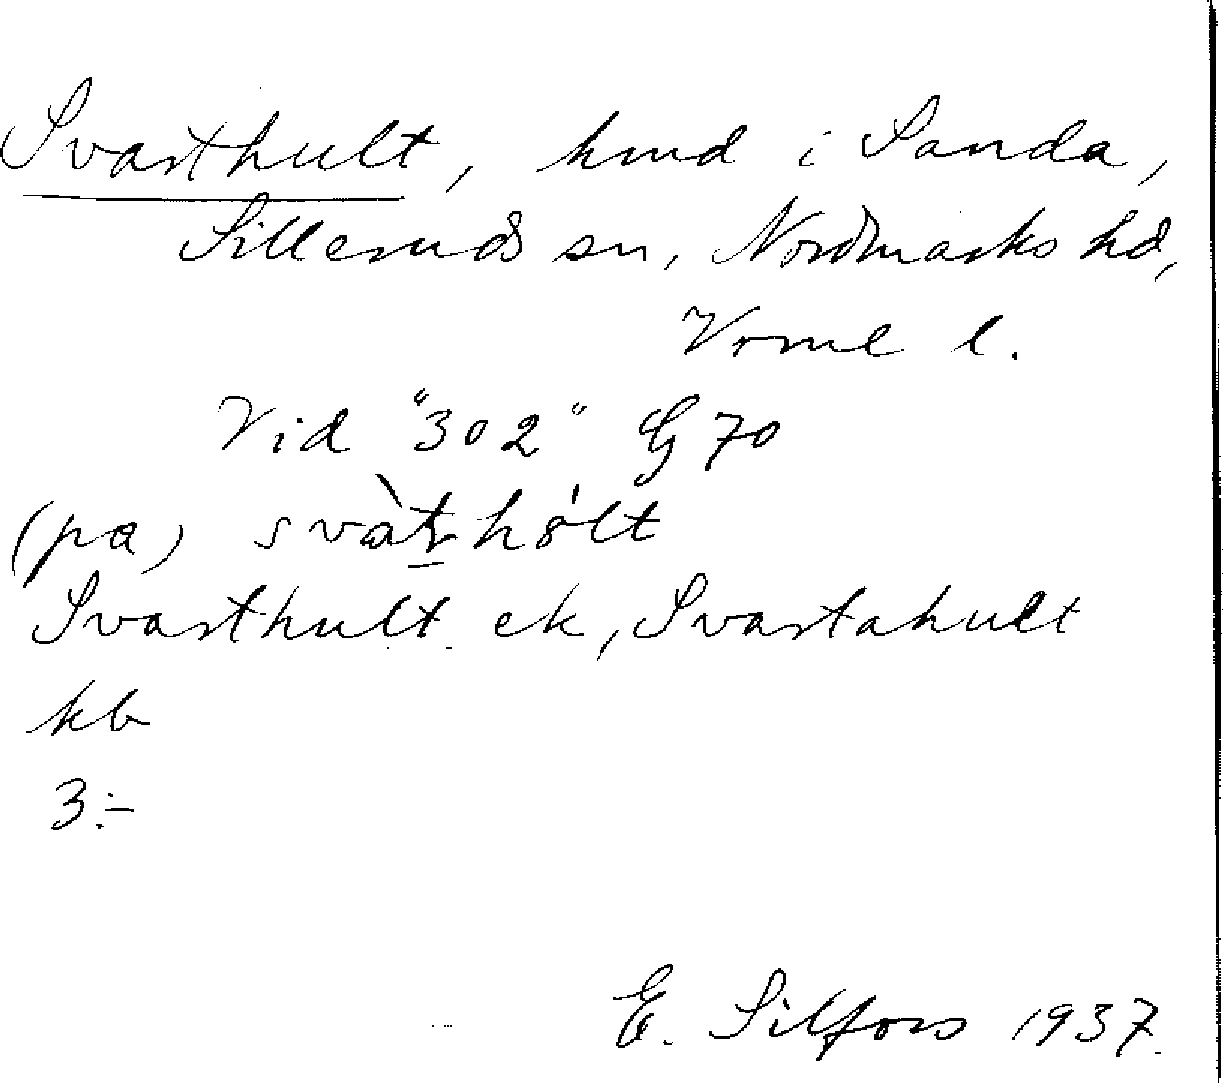 Svarthult, hmd i Sanda,
Silleruds sn, Nordmarks hd,
Vrml l.
Vid "302" G 70
(pa) svàt̠hȯlt
Svarthult ek, Svartahult
kb
3:-
E. Silfors 1937.